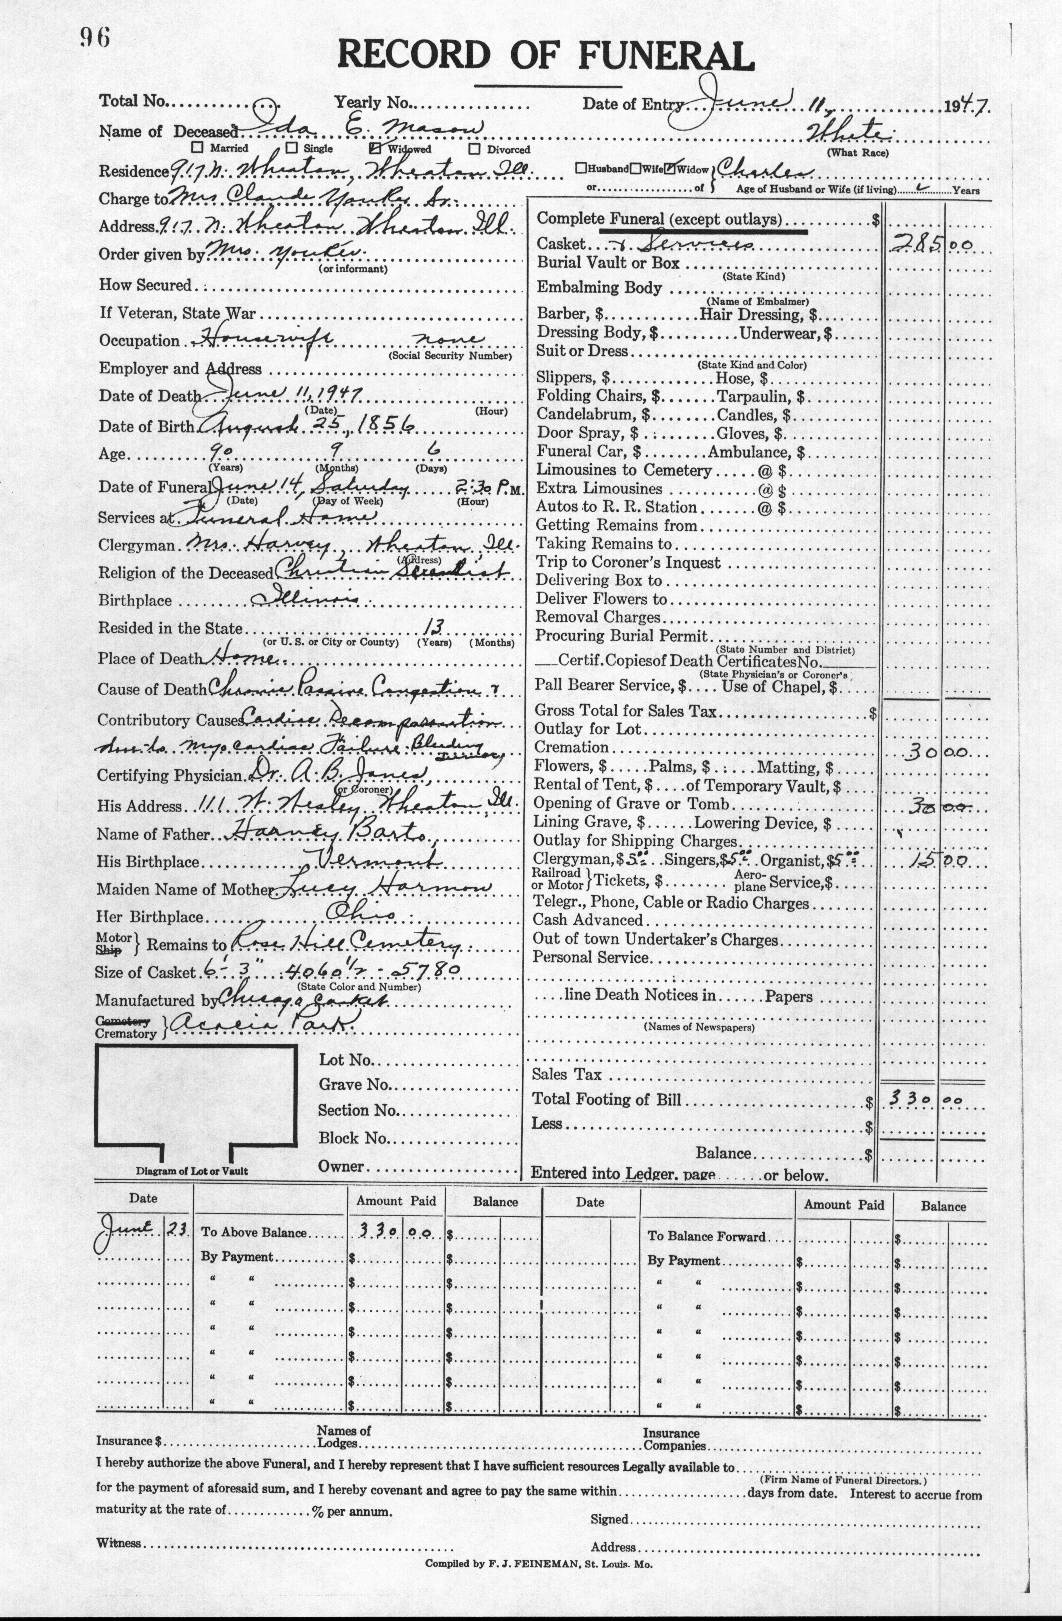 96
RECORD OF FUNERAL
Total No. Yearly No. Date of Entry June 11, 1947.
Name of Deceased Ida E. Mason White
Married Single Widowed Divorced (What Race)
Residence 917 N. Wheaton, Wheaton, Ill. Husband Wife Widow } Charles
or of Age of Husband or Wife (if living) Years
Charge to Mrs. Claude Younker Sr.
Address 917 N. Wheaton Wheaton Ill.
Order given by Mrs. Younker
(or informant)
How Secured
If Veteran, State War
Occupation Housewife none
(Social Security Number)
Employer and Address
Date of Death June 11, 1947
(Date) (Hour)
Date of Birth August 25, 1856
Age 90 9 6
(Years) (Months) (Days)
Date of Funeral June 14, Saturday 2:30 P.M.
(Date) (Day of Week) (Hour)
Services at Funeral Home
Clergyman Mrs. Harvey, Wheaton, Ill.
(Address)
Religion of the Deceased Christian Scientist
Birthplace Illinois
Resided in the State 13
(or U. S. or City or County) (Years) (Months)
Place of Death Home
Cause of Death Chronic Passive Congestion &
Contributory Causes Cardiac Decompensation
due to myocardiac Failure. Bleeding
Certifying Physician Dr. A. B. Jones,
(or Coroner)
His Address 111 W. Wesley, Wheaton, Ill.
Name of Father Harvey Barto,
His Birthplace Vermont
Maiden Name of Mother Lucy Harmon
Her Birthplace Ohio
Motor
Ship } Remains to Rose Hill Cemetery
Size of Casket 6'-3" 4060 1/2 - 5780
(State Color and Number)
Manufactured by Chicago Casket
Cemetery
Crematory } Acacia Park
Lot No.
Grave No.
Section No.
Block No.
Diagram of Lot or Vault
Owner
Complete Funeral (except outlays) $
Casket & Services 285 00
Burial Vault or Box
(State Kind)
Embalming Body
(Name of Embalmer)
Barber, $ Hair Dressing, $
Dressing Body, $ Underwear, $
Suit or Dress
(State Kind and Color)
Slippers, $ Hose, $
Folding Chairs, $ Tarpaulin, $
Candelabrum, $ Candles, $
Door Spray, $ Gloves, $
Funeral Car, $ Ambulance, $
Limousines to Cemetery @ $
Extra Limousines @ $
Autos to R. R. Station @ $
Getting Remains from
Taking Remains to
Trip to Coroner's Inquest
Delivering Box to
Deliver Flowers to
Removal Charges
Procuring Burial Permit
(State Number and District)
Certif. Copies of Death Certificates No.
(State Physician's or Coroner's
Pall Bearer Service, $ Use of Chapel, $
Gross Total for Sales Tax $
Outlay for Lot
Cremation 30 00
Flowers, $ Palms, $ Matting, $
Rental of Tent, $ of Temporary Vault, $
Opening of Grave or Tomb 30 00
Lining Grave, $ Lowering Device, $
Outlay for Shipping Charges
Clergyman, $5.00 Singers, $5.00 Organist, $5.00 15 00
Railroad
or Motor } Tickets, $ Aero-
plane Service, $
Telegr., Phone, Cable or Radio Charges
Cash Advanced
Out of town Undertaker's Charges
Personal Service
line Death Notices in Papers
(Names of Newspapers)
Sales Tax
Total Footing of Bill $ 330 00
Less $
Balance $
Entered into Ledger, page or below.
Date Amount Paid Balance Date Amount Paid Balance
June 23 To Above Balance 330 00 $ To Balance Forward $
By Payment $ $ By Payment $ $
" " $ $ " " $ $
" " $ $ " " $ $
" " $ $ " " $ $
" " $ $ " " $ $
" " $ $ " " $ $
" " $ $ " " $ $
Insurance $ Names of Lodges Insurance Companies
I hereby authorize the above Funeral, and I hereby represent that I have sufficient resources Legally available to
(Firm Name of Funeral Directors.)
for the payment of aforesaid sum, and I hereby covenant and agree to pay the same within days from date. Interest to accrue from
maturity at the rate of % per annum.
Signed
Witness Address
Compiled by F. J. FEINEMAN, St. Louis. Mo.